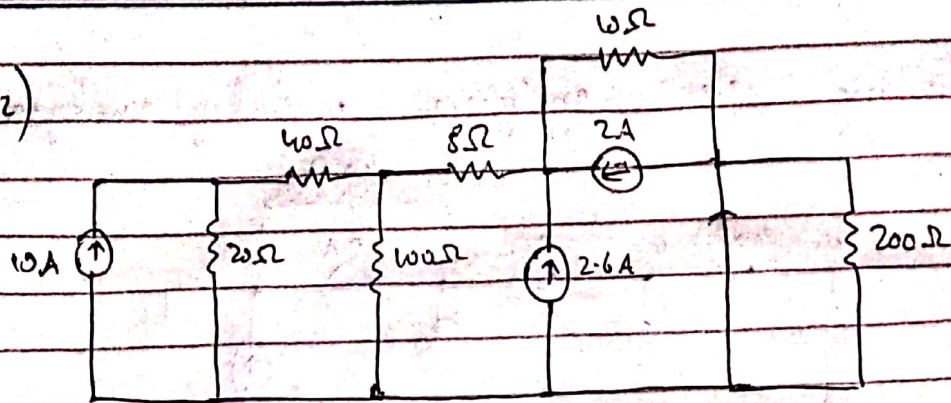 10Ω
2)
40Ω
8Ω
2A
10A
20Ω
100Ω
2.6A
200Ω